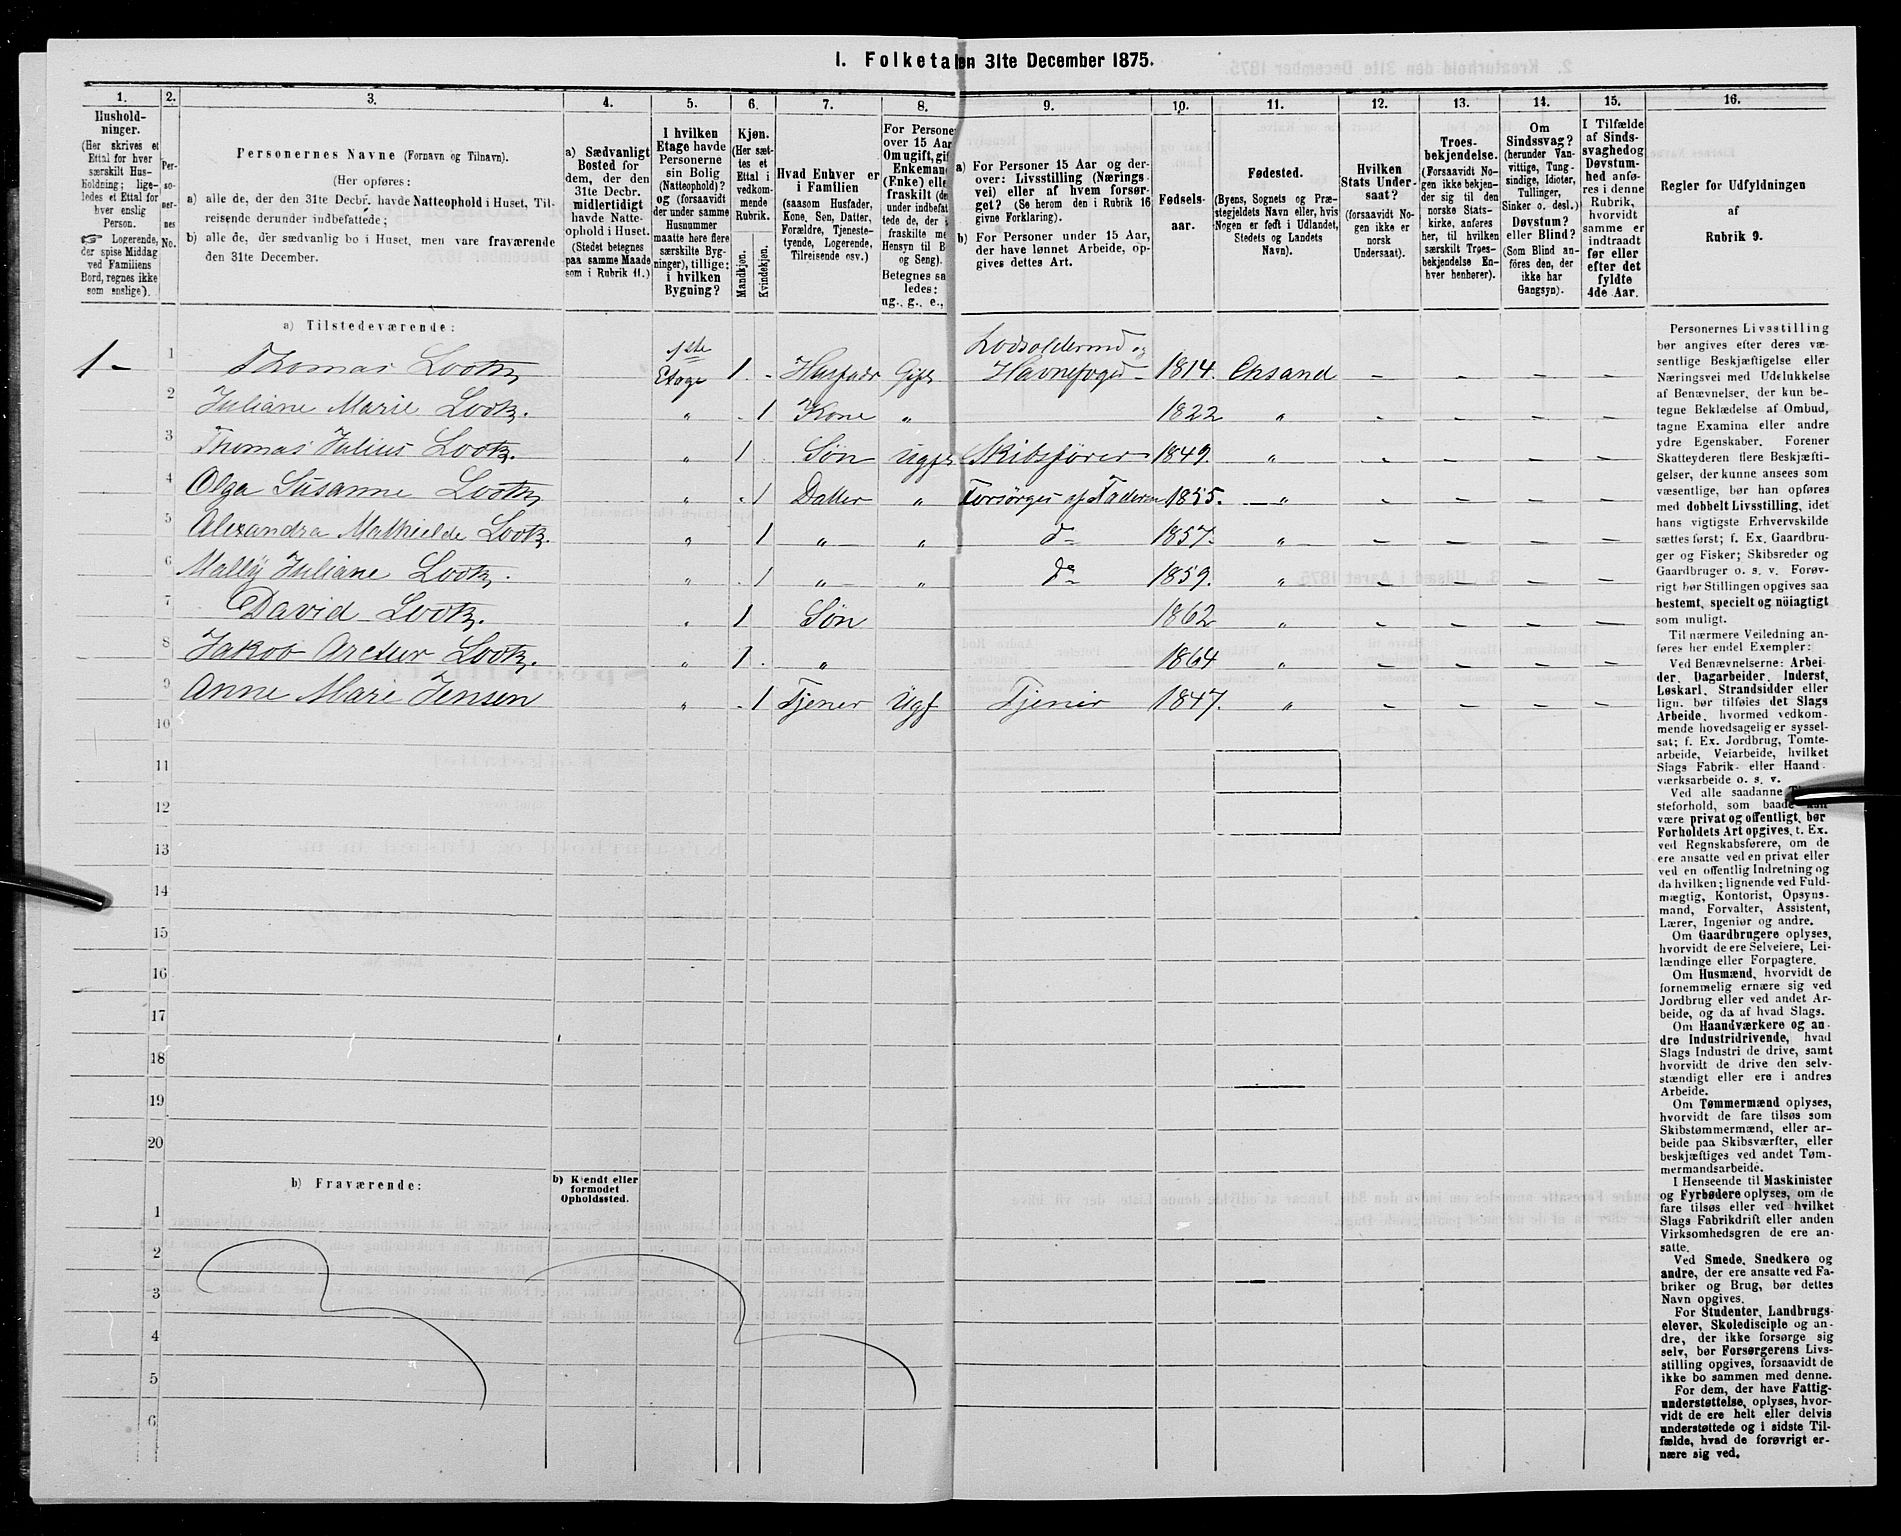 1. Folketalen 31te December 1875.
1. 2. 3. 4. 5. 6. 7. 8. 9. 10. 11. 12. 13. 14. 15. 16.
Hushold-
ninger.
(Her skrives et
Ettal for hver
særskilt Hus-
holdning; lige-
ledes et Ettal for
hver enslig
Person.
Logerende,
der spise Middag
ved Familiens
Bord, regnes ikke
som enslige).
Per-
so-
ner-
nes
No.
Personernes Navne (Fornavn og Tilnavn).
(Her opføres:
a) alle de, der den 31te Decbr. havde Natteophold i Huset, Til-
reisende derunder indbefattede;
b) alle de, der sædvanlig bo i Huset, men vare fraværende
den 31te December.
a) Sædvanligt
Bosted for
dem, der den
31te Decbr.
midlertidigt
havde Natte-
ophold i Huset.
(Stedet betegnes
paa samme Maade
som i Rubrik 11.)
I hvilken
Etage havde
Personerne
sin Bolig
(Natteophold)?
og (forsaavidt
der under samme
Husnummer
maatte høre flere
særskilte Byg-
ninger), tillige:
i hvilken
Bygning?
Kjøn.
(Her sæt-
tes et
Ettal i
vedkom-
mende
Rubrik.
Mandkjøn.
Kvindekjøn.
Hvad Enhver er
i Familien
(saasom Husfader,
Kone, Søn, Datter,
Forældre, Tjeneste-
tyende, Logerende,
Tilreisende osv.)
For Persone
over 15 Aar
Om ugift, gif
Enkemand
(Enke) elle
fraskilt (de
under indbefat
tede de, der
fraskilte me
Hensyn til B
og Seng).
Betegnes sa
ledes:
ug., g., e.,
a) For Personer 15 Aar og der-
over: Livsstilling (Nærings
vei) eller af hvem forsør-
get? (Se herom den i Rubrik 16
givne Forklaring).
b) For Personer under 15 Aar,
der have lønnet Arbeide, op-
gives dettes Art.
Fødsels-
aar.
Fødested.
(Byens, Sognets og Præ-
stegjeldets Navn eller, hvis
Nogen er født i Udlandet,
Stedets og Landets
Navn).
Hvilken
Stats Under-
saat?
(forsaavidt No-
gen ikke er
norsk
Undersaat).
Troes-
bekjendelse.
(Forsaavidt No-
gen ikke bekjen-
der sig til den
norske Stats-
kirke, anføres
her, til hvilken
særskilt Troes-
bekjendelse En-
hver henhører).
Om
Sindssvag?
(herunder Van-
vittige, Tung-
sindige, Idioter,
Tullinger,
Sinker o. desl.)
Døvstum?
eller Blind?
(Som Blind an-
føres den, der
ikke har
Gangsyn).
I Tilfælde
af Sinds-
svaghed og
Døvstum-
hed anfø-
res i denne
Rubrik,
hvorvidt
samme er
indtraadt
før eller
efter det
fyldte
4de Aar.
Regler for Udfyldningen
af
Rubrik 9.
a) Tilstedeværende:
1 – 1 Thomas Lootz 1ste Etage 1 - Husfadr Gift Lodsoldermd og Havnefoged – 1814. Chsand – – – –
2 Juliane Marie Lootz. " . 1 Kone " 1822 " – – – –
3 Thomas Julius Lootz. " 1 Søn Ugift Skibsfører 1849. " – – – –
4 Olga Susanne Lootz " . 1 Datter " Forsørges af Faderen 1855. " – – – –
5 Alexandra Mathielde Lootz. " 1 " " do 1857. " – – – –
6 Mally Juliane Lootz. " . 1 " " do 1859. " – – – –
7 David Lootz. " 1 Søn 1862 " – – – –
8 Jakob Arctur Lootz. " 1 . " 1864 " – – – –
9 Anne Marie Jensen " . 1 Tjener Ugf Tjener 1847. " – – – –
10
11
12
13
14
15
16
17
18
19
20
b) Fraværende:
b) Kjendt eller
formodet
Opholdssted.
1
2
3
4
5
6
Personernes Livsstilling
bør angives efter deres væ-
sentlige Beskjæftigelse eller
Næringsvei med Udelukkelse
af Benævnelser, der kun be-
tegne Beklædelse af Ombud,
tagne Examina eller andre
ydre Egenskaber. Forener
Skatteyderen flere Beskjæfti-
gelser, der kunne ansees som
væsentlige, bør han opføres
med dobbelt Livsstilling, idet
hans vigtigste Erhvervskilde
sættes først; f. Ex. Gaardbru-
ger og Fisker; Skibsreder og
Gaardbruger o. s. v. Forøv-
rigt bør Stillingen opgives saa
bestemt, specielt og nöiagtigt
som muligt.
Til nærmere Veiledning an-
føres her endel Exempler:
Ved Benævnelserne: Arbei-
der, Dagarbeider, Inderst,
Løskarl, Strandsidder eller
lign. bør tilføies det Slags
Arbeide, hvormed vedkom-
mende hovedsagelig er syssel-
sat; f. Ex. Jordbrug, Tomte-
arbeide, Veiarbeide, hvilket
Slags Fabrik- eller Haand-
værksarbeide o. s. v.
Ved alle saadanne
steforhold, som baade kan
være privat og offentligt, bør
Forholdets Art opgives, t. Ex.
ved Regnskabsførere, om de
ere ansatte ved en privat eller
ved en offentlig Indretning og
da hvilken; lignende ved Fuld-
mægtig, Kontorist, Opsyns-
mand, Forvalter, Assistent,
Lærer, Ingeniør og andre.
Om Gaardbrugere oplyses,
hvorvidt de ere Selveiere, Lei-
lændinge eller Forpagtere.
Om Husmænd, hvorvidt de
fornemmelig ernære sig ved
Jordbrug eller ved andet Ar-
beide, og da af hvad Slags.
Om Haandværkere og an-
dre Industridrivende, hvad
Slags Industri de drive, samt
hvorvidt de drive den selv-
stændigt eller ere i andres
Arbeide.
Om Tømmermænd oplyses,
hvorvidt de fare tilsøs som
Skibstømmermænd, eller ar-
beide paa Skibsværfter, eller
beskjæftiges ved andet Tøm-
mermandsarbeide.
I Henseende til Maskinister
og Fyrbødere oplyses, om de
fare tilsøs eller ved hvilket
Slags Fabrikdrift eller anden
Virksomhedsgren de ere an-
satte.
Ved Smede, Snedkere og
andre, der ere ansatte ved Fa-
briker og Brug, bør dettes
Navn opgives.
For Studenter, Landbrugs-
elever, Skoledisciple og an-
dre, der ikke forsørge sig
selv, bør Forsørgerens Livs-
stilling opgives, forsaavidt de
ikke bo sammen med denne.
For dem, der have Fattig-
understøttelse, oplyses, hvor-
vidt de ere helt eller delvis
understøttede og i sidste Til-
fælde, hvad de forøvrigt er-
nære sig ved.